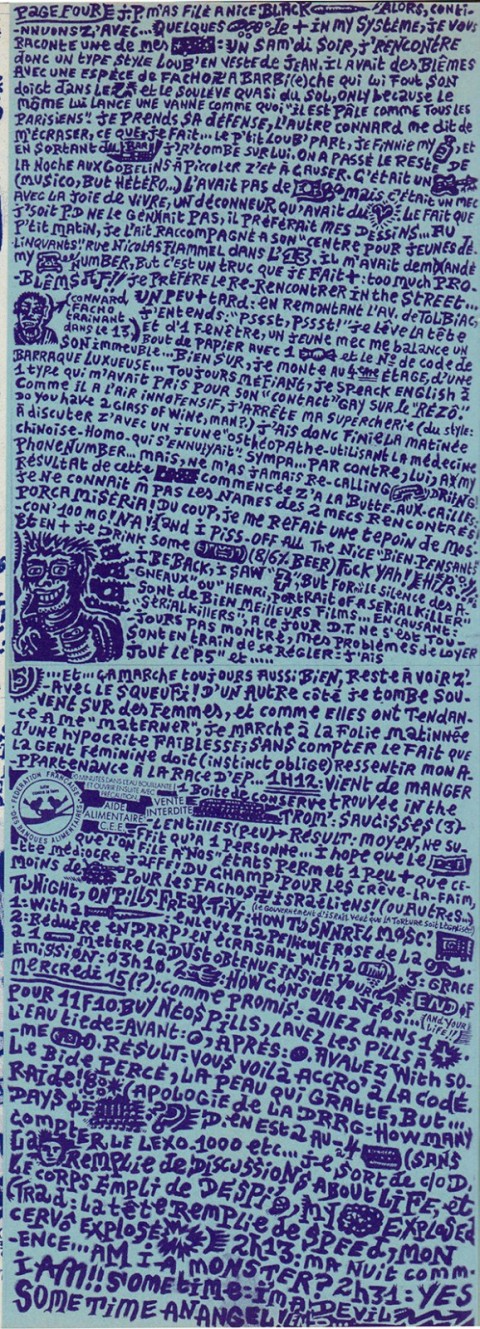 PAGE FOUR J-P M'AS FILÉ A NICE BLACK ALORS, CONTI-
-NNUONS Z'AVEC... QUELQUES Je + IN MY SYSTÈME, JE VOUS
RACONTE UNE DE MES : UN SAM'DI SOIR, J'RENCONTRE
DONC UN TYPE STYLE LOUB' EN VESTE DE JEAN, IL AVAIT DES BLÈMES
AVEC UNE ESPÈCE DE FACHO Z'A BARBI(E)CHE QUI LUI FOUT SON
DOIGT DANS LE ET LE SOULÈVE QUASI DU SOL, ONLY BECAUSE LE
MÔME LUI LANCE UNE VANNE COMME QUOI "IL EST PÂLE COMME TOUS LES
PARISIENS". JE PRENDS SA DÉFENSE, L'AUTRE CONNARD ME DIT DE
M'ÉCRASER, CE QUE JE FAIT... LE P'TIT LOUB' PART, JE FINNIE MY ET
EN SORTANT DU BAR J'R'TOMBE SUR LUI. ON A PASSÉ LE RESTE DE
LA NOCHE AUX GOBELINS À PICCOLER Z'ET À CAUSER. C'ÉTAIT UN
(MUSICO, BUT HÉTÉRO...) L'AVAIT PAS DE MAIS C'ÉTAIT UN MEC
AVEC LA JOIE DE VIVRE, UN DÉCONNEUR QU'AVAIT DU LE FAIT QUE
J'SOIT P.D NE LE GÉNAIT PAS, IL PRÉFÉRAIT MES DESSINS... AU
P'TIT MATIN, JE L'AIT RACCOMPAGNÉ A SON "CENTRE POUR JEUNES DÉ-
LINQUANTS" RUE NICOLAS FLAMMEL DANS L'13. IL M'AVAIT DEMANDÉ
MY NUMBER, BUT C'EST UN TRUC QUE JE FAIT + : TOO MUCH PRO-
-BLÈMS JE PRÉFÈRE LE RE-RENCONTRER IN THE STREET...
CONNARD FACHO TRAINANT DANS LE 13
UN PEU + TARD : EN REMONTANT L'AV. DE TOLBIAC,
J'ENTENDS : "PSSST, PSSST!" JE LÈVE LA TÊTE
ET D'1 FENÊTRE, UN JEUNE MEC ME BALANCE UN
BOUT DE PAPIER AVEC 1 ET LE No DE CODE DE
SON IMMEUBLE... BIEN SUR, JE MONTE AU 4ème ÉTAGE, D'UNE
BARRAQUE LUXUEUSE... TOUJOURS MÉFIANT, JE SPEACK ENGLISH À
1 TYPE QUI M'AVAIT PRIS POUR SON "CONTACT" GAY SUR LE "RÉZÔ".
COMME IL A L'AIR INNOFENSIF, J'ARRÊTE MA SUPERCHERIE (DU STYLE :
DO YOU HAVE 2 GLASS OF WINE, MAN?) J'AIS DONC FINIE LA MATINÉE
À DISCUTER Z'AVEC UN JEUNE "OSTHÉOPATHE-UTILISANT LA MÉDECINE
CHINOISE-HOMO-QUI S'ENNUIYAIT". SYMPA... PAR CONTRE, LUI, AX MY
PHONE NUMBER... MAIS, NE M'AS JAMAIS RE-CALLING DRIING!
RÉSULTAT DE CETTE COMMENCÉE Z'A LA BUTTE-AUX-CAILLES,
JE NE CONNAIT À PAS LES NAMES DES 2 MECS RENCONTRÉS!
PORCA MISERIA! DU COUP, JE ME REFAIT UNE TEPOIN DE MOS-
-CON' 100 MG! NA! (AND I PISS OFF ALL THE NICE "BIEN PENSANTS
ET EN + JE DRINK SOME (8/6% BEER) FUCK YAH!
I BE BACK, I SAW BUT FOR mi LE SILENCE DES A-
GNEAUX" OU "HENRI, PORTRAIT OF A SERIAL KILLER"
SONT DE BIEN MEILLEURS FILMS... EN CAUSANT :
"SERIAL KILLERS", À CE JOUR D.T. NE S'EST TOU-
JOURS PAS MONTRÉ, MES PROBLÈMES DE LOYER
SONT EN TRAIN DE SE RÉGLER : J'AIS
JOUÉ LE "P5" ET.....
5 ...ET... ÇA MARCHE TOUJOURS AUSSI BIEN, RESTE À VOIR Z'-
-AVEC LE SQUEUFI! D'UN AUTRE CÔTÉ JE TOMBE SOU-
VENT SUR DES FEMMES, ET COMME ELLES ONT TENDAN-
-CE À ME "MATERNER", JE MARCHE À LA FOLIE MATINNÉE
D'UNE HYPOCRITE FAIBLESSE, SANS COMPTER LE FAIT QUE
LA GENT FÉMININE DOIT (INSTINCT OBLIGE) RESSENTIR MON A-
PPARTENANCE À LA RACE D'EP... 1H12 : VIENT DE MANGER
FÉDÉRATION FRANÇAISE DES BANQUES ALIMENTAIRES
MINUTES DANS L'EAU BOUILLANTE
ET OUVRIR ENSUITE AVEC
PRÉCAUTION
AIDE
ALIMENTAIRE
C.E.E.
VENTE
INTERDITE
1 BOITE DE CONSERVE TROUVÉE IN THE
TROM' : SAUCISSES (3)-
-LENTILLES (PEU) → RÉSULT : MOYEN, NE SU-
-FFIT QU'A 1 PERSONNE... I HOPE QUE LE
QUE L'ON FILE À "NOS" ÉTATS PERMET 1 PEU + QUE CE-
-TTE MÉDIOCRE JAFFE! DU CHAMPI POUR LES CRÈVE-LA-FAIM,
MOINS DE POUR LES FACHOS ISRAÉLIENS! (OU AUTRES...)
(LE GOUVERNEMENT D'ISRAËL VEUT QUE LA TORTURE SOIT LÉGALISÉE)
TONIGHT, ON PILLS-FREAK T.V. : HOW TO SNNRF! MOSC :
1 : WITH A ENLEVEZ LA PELLICULE ROSE DE LA
2 : RÉDUIRE EN DRRP LA ÉCRASANT WITH A 3 : GRACE
À 1 METTRE LA DUST OBTENUE INSIDE YOUR END OF
(AND YOUR LIFE!!)
ÉMISSION. 03H10. : HOW CONSUME NÉOS...
MERCREDI 15(?) : COMME PROMIS : ALLEZ DANS 1
POUR 11F10 BUY NÉOS PILLS, LAVEZ LES PILLS À
L'EAU TIÈDE = AVANT : APRÈS : AVALEZ WITH SO-
-ME RÉSULT : VOUS VOILÀ ACCRO' À LA CODÉ.
LE BIDE PERCÉ, LA PEAU QUI GRATTE, BUT...
RAIDE! (APOLOGIE DE LA DRRG-HOW MANY
DAYS OF D. EN EST 2 AU (SANS
COMPTER LE LEXO. 1000 ETC... JE SORT DE C/O D.
LA REMPLIE DE DISCUSSIONS ABOUT LIFE, ET
LE CORPS EMPLI DE DESPI', MY EXPLOSED
(TRAD : LA TÊTE REMPLIE DE SPEED, MON
CERVÔ EXPLOSÉ 2H13 : MA NUIT COMM-
-ENCE... AM I A MONSTER? 2H31 : YES
I AM!! SOMETIME : I'M A DEVIL
SOMETIME AN ANGEL!